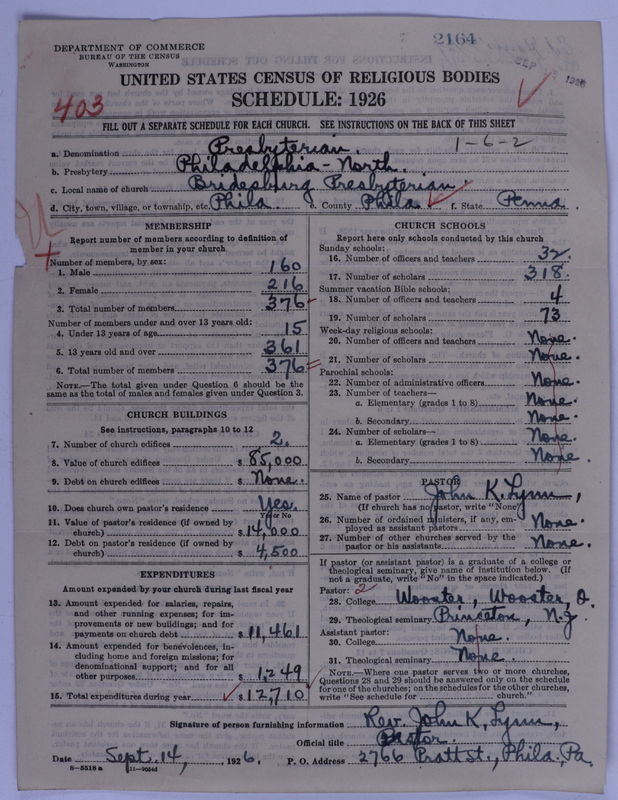 2164
DEPARTMENT OF COMMERCE
BUREAU OF THE CENSUS
WASHINGTON
SEP 1926
UNITED STATES CENSUS OF RELIGIOUS BODIES
403
SCHEDULE: 1926
FILL OUT A SEPARATE SCHEDULE FOR EACH CHURCH. SEE INSTRUCTIONS ON THE BACK OF THIS SHEET
a. Denomination Presbyterian. 1-6-2
b. Presbytery Philadelphia-North.
c. Local name of church Bridesburg Presbyterian.
d. City, town, village, or township, etc. Phila. e. County Phila. f. State Penna.
MEMBERSHIP
Report number of members according to definition of
member in your church
Number of members, by sex:
1. Male 160
2. Female 216
3. Total number of members 376
Number of members under and over 13 years old:
4. Under 13 years of age 15
5. 13 years old and over 361
6. Total number of members 376
NOTE.—The total given under Question 6 should be the
same as the total of males and females given under Question 3.
CHURCH BUILDINGS
See instructions, paragraphs 10 to 12
7. Number of church edifices 2.
8. Value of church edifices $ 85,000
9. Debt on church edifices $ None.
10. Does church own pastor's residence Yes.
Yes or No
11. Value of pastor's residence (if owned by
church) $ 14,000
12. Debt on pastor's residence (if owned by
church) $ 4,500
EXPENDITURES
Amount expended by your church during last fiscal year
13. Amount expended for salaries, repairs,
and other running expenses; for im-
provements or new buildings; and for
payments on church debt $ 11,461
14. Amount expended for benevolences, in-
cluding home and foreign missions; for
denominational support; and for all
other purposes $ 1,249
15. Total expenditures during year $ 12,710
CHURCH SCHOOLS
Report here only schools conducted by this church
Sunday schools:
16. Number of officers and teachers 32.
17. Number of scholars 318.
Summer vacation Bible schools:
18. Number of officers and teachers 4
19. Number of scholars 73
Week-day religious schools:
20. Number of officers and teachers None.
21. Number of scholars None.
Parochial schools:
22. Number of administrative officers None.
23. Number of teachers—
a. Elementary (grades 1 to 8) None.
b. Secondary None.
24. Number of scholars—
a. Elementary (grades 1 to 8) None.
b. Secondary None.
PASTOR
25. Name of pastor John K. Lynn,
(If church has no pastor, write "None")
26. Number of ordained ministers, if any, em-
ployed as assistant pastors None.
27. Number of other churches served by the
pastor or his assistants None.
If pastor (or assistant pastor) is a graduate of a college or
theological seminary, give name of institution below. (If
not a graduate, write "No" in the space indicated.)
Pastor: 2
28. College Wooster, Wooster, O.
29. Theological seminary Princeton, N.J.
Assistant pastor:
30. College None.
31. Theological seminary None.
NOTE.—Where one pastor serves two or more churches,
Questions 28 and 29 should be answered only on the schedule
for one of the churches; on the schedules for the other churches,
write "See schedule for church."
Signature of person furnishing information Rev. John K. Lynn,
Official title Pastor.
Date Sept. 14, 1926. P. O. Address 2766 Pratt st., Phila., Pa.
8-5518 a 11-9054d